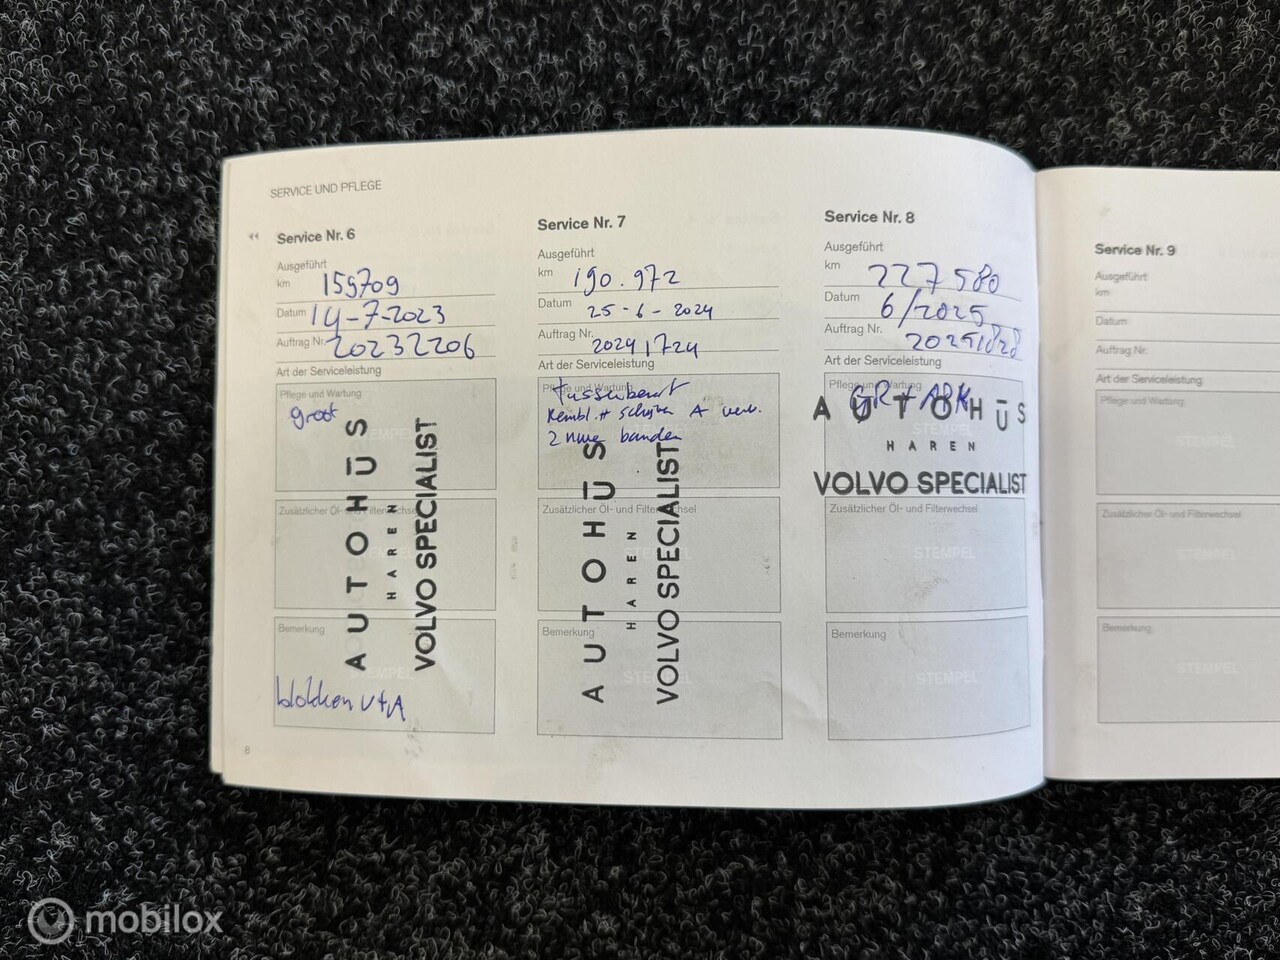 SERVICE UND PFLEGE
Service Nr. 6
Ausgeführt
km 159709
Datum 14-7-2023
Auftrag Nr. 20232206
Art der Serviceleistung
Pflege und Wartung
groot
Zusätzlicher Öl- und Filterwechsel
Bemerkung
STEMPEL
blokken V+A
AUTOHŪS
HAREN
VOLVO SPECIALIST
8
Service Nr. 7
Ausgeführt
km 190.972
Datum 25-6-2024
Auftrag Nr. 20241724
Art der Serviceleistung
Pflege und Wartung
tussenbeurt
Rembl. + schijven A verv.
2 nwe banden
Zusätzlicher Öl- und Filterwechsel
Bemerkung
STEMPEL
AUTOHŪS
HAREN
VOLVO SPECIALIST
Service Nr. 8
Ausgeführt
km 227580
Datum 6/2025
Auftrag Nr. 20251828
Art der Serviceleistung
Pflege und Wartung
GR + APK
AUTOHŪS
STEMPEL
HAREN
VOLVO SPECIALIST
Zusätzlicher Öl- und Filterwechsel
STEMPEL
Bemerkung
STEMPEL
Service Nr. 9
Ausgeführt
km
Datum
Auftrag Nr.
Art der Serviceleistung
Pflege und Wartung
STEMPEL
Zusätzlicher Öl- und Filterwechsel
STEMPEL
Bemerkung
STEMPEL
mobilox